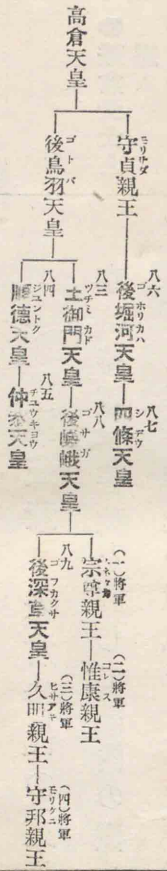 高倉天皇
守貞親王 モリサダ
八六 後堀河天皇 ゴホリカハ
八七 四條天皇 シデウ
後鳥羽天皇 ゴトバ
八三 土御門天皇 ツチミカド
八八 後嵯峨天皇 ゴサガ
(一)將軍 宗尊親王
(二)將軍 惟康親王 コレヤス
八九 後深草天皇 ゴフカクサ
(三)將軍 久明親王 ヒサアキ
(四)將軍 守邦親王 モリクニ
八四 順德天皇 ジユントク
八五 仲恭天皇 チユウキヨウ